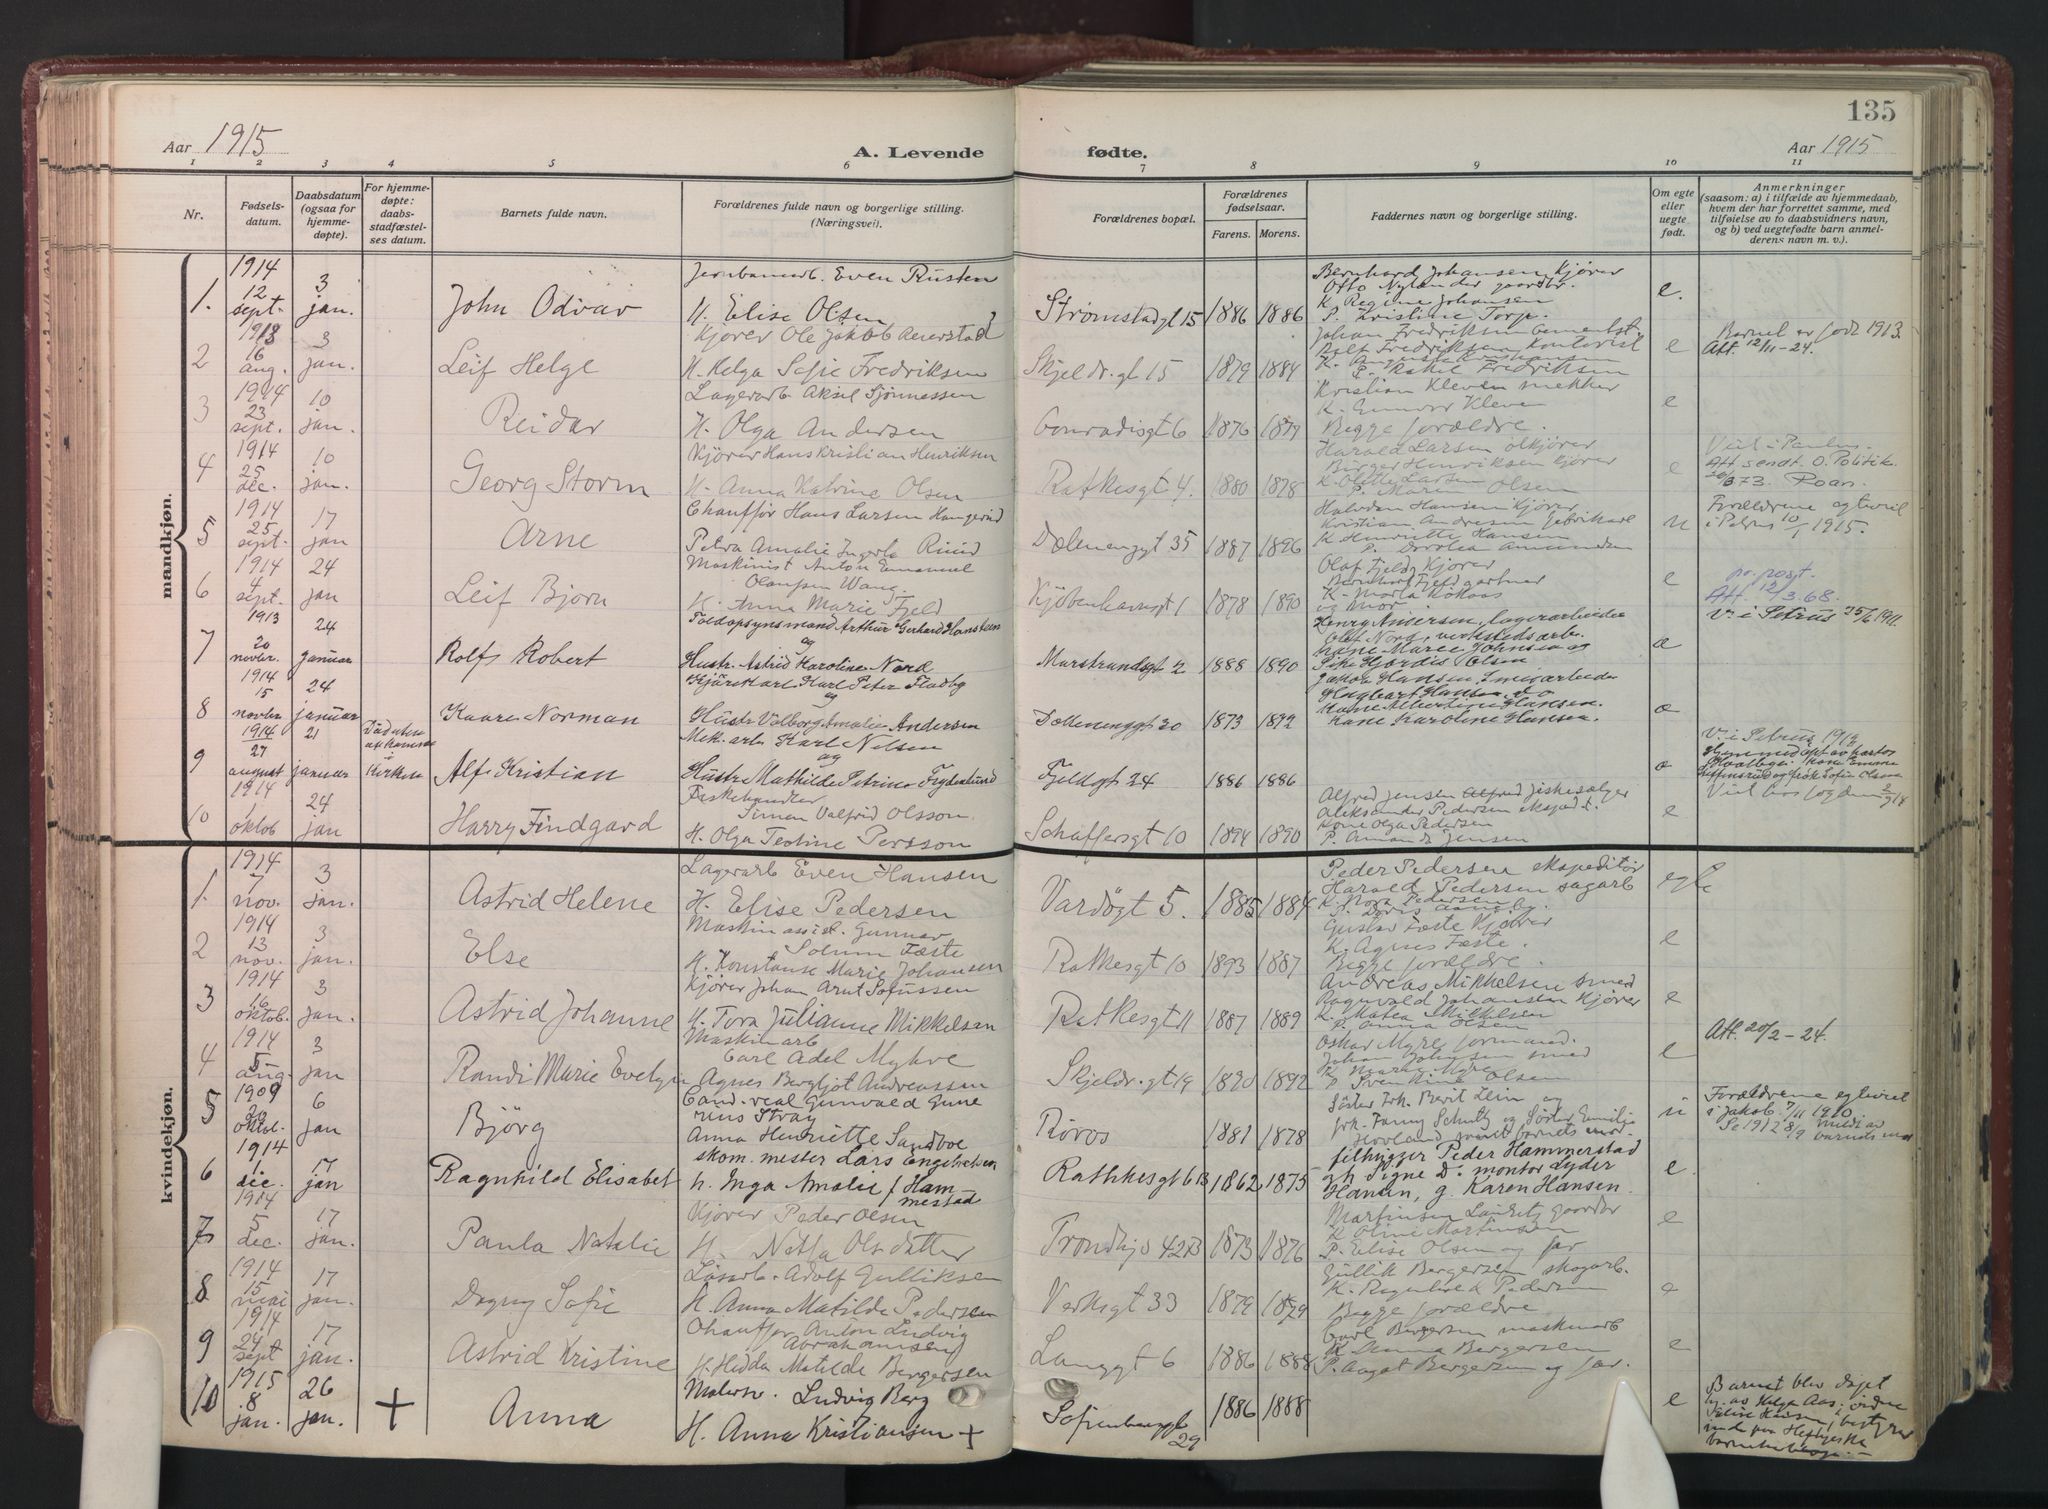 135
Aar 1915
A. Levende
fødte.
Aar 1915
1 2 3 4 5 6 7 8 9 10 11
Nr.
Fødsels-
datum.
Daabsdatum
(ogsaa for
hjemme-
døpte).
For hjemme-
døpte:
daabs-
stadfæstel-
ses datum.
Barnets fulde navn.
Forældrenes fulde navn og borgerlige stilling.
(Næringsvei).
Forældrenes bopæl.
Forældrenes
fødselsaar.
Farens. Morens.
Faddernes navn og borgerlige stilling.
Om egte
eller
uegte
født.
Anmerkninger
(saasom: a) i tilfælde av hjemmedaab,
hvem der har forrettet samme, med
tilføielse av to daabsvidners navn,
og b) ved uegtefødte barn anmel-
derens navn m. v.).
mandkjøn.
1. 1914 12 sept. 3 jan. John Odvar
Jernbanearb. Even Rusten
H. Elise Olsen
Strømstadgt 15 1886 1886
Bernhard Johansen Kjører
Otto Nylander gaardbr.
K. Regine Johansen
P. Kristine Torp.
e.
2 1913 16 aug. 3 jan. Leif Helge
Kjører Ole Jakob
H. Helga Sofie Fredriksen
Skjeldr. gt 15 1879 1884
Johan Fredriksen
Rolf Fredriksen Kontorist
P. Rakel Fredriksen
e
Barnet er født 1913.
Att. 12/11-24.
3 1914 23 sept. 10 jan. Reidar
Lagerarb Aksel Sjønnessen
H. Olga Andersen
Conradisgt 6 1876 1879
Kristian Kleven mekker
K. Gunvor Kleven
Begge forældre.
e
4 1914 25 dec. 10 jan. Georg Storm
Kjører Hans Kristian Henriksen
H. Anna Katrine Olsen
Ratkesgt 4. 1880 1878
Harald Larsen ølkjører
Birger Henriksen Kjører
K. Olette Larsen
P. Maren Olsen
e
Viet i Paulus.
Att. sendt O. Politik.
5 1914 25 sept. 17 jan Arne
Chauffør Hans Larsen
Petra Amalie Ingerla Ruud
Dælenenggt 35 1887 1896
Halvdan Hansen Kjører
K Henriette Hansen
P. Dorthea Amundsen
u
Forældrene egteviel
i Petrus 10/1 1915.
6 1914 4 sept. 24 jan Leif Bjørn
Maskinist Anton Emanuel
Olaussen Wang
H. Anna Marie Fjeld
Kjøbenhavnsgt 1 1878 1890
Olaf Fjeld Kjører
Bernhard Fjeld gartner
K. Marta Kokaas
og mor.
e
pr. post.
Att. 12/3.68.
7 1913 20 novbr. 24 januar Rolf Robert
Toldopsynsmand Arthur Gerhard Hansteen
og
Hustr. Astrid Karoline Nord
Marstrandsgt 2 1888 1890
Henry Andersen, lagerarbeider
Olaf Nord, verkstedsarb.
Pike Hjørdis Olsen
V. i Petrus 25/6 1911.
8 1914 15 novbr. 24 januar Kaare Norman
Kjørekarl Karl Peter Fladby
og
Hustr. Valborg Amalie Andersen
Dælenenggt 30 1873 1892
Jakob Hansen, Smiearbeider
Hagbart Hansen, do
Kone Albertine Hansen.
Kone Karoline Hansen.
9 1914 27 august 21 januar Alf Kristian
Mek. arb Karl Nelsen
og
Hustr. Mathilde Petrine Frydenlund
Fjeldgt 24 1886 1886
V. i Petrus 1912
10 1914 1 oktob 24 jan Harry Findgard
Fiskehandler
Simon Valfrid Olsson.
H. Olga Teoline Persson
Schaffersgt 10 1894 1890
Alfred Jensen fiskesælger
Aleksander Pedersen eksped t.
Kone Olga Pedersen
P. Amanda Jensen
e
kvindekjøn.
1. 1914 7 nov. 3 jan. Astrid Helene
Lagerarb Even Hansen
H. Elise Pedersen
Vardøgt 5. 1885 1884
Peder Pedersen ekspeditør
Harald Pedersen sagarb
K. Nora Pedersen
egte
2 1914 13 nov. 3 jan. Else
Maskinassist. Gunnar
Solum Fæste
H. Konstanse Marie Johansen
Ratkesgt 10 1893 1887
Gustav Fæste Kjører
K. Agnes Fæste.
Begge forældre.
e
3 1914 16 oktob. 3 jan. Astrid Johanne
Kjører Johan Arnt Sofussen
H. Tora Julianne Mikkelsen
Ratkesgt 11 1887 1889
Andreas Mikkelsen smed
Ragnvald Johansen Kjører
K. Matea Mikkelsen
P. Anna Olsen
e
4 1914 5 aug. 3 jan Randi Marie Evelyn
Maskinarb
Carl Adel Myhre
Agnes Bergljot Andreassen
Skjeldr. gt 19 1890 1892
Oskar Myre formand.
Johan Johnsen smed
K Marie Myre
Olsen
e
Att. 20/2-24.
5 1909 20 oktob. 6 jan Bjørg
Cand. real Gunvald Gune
rius Stray
Anna Henriette Sandboe
Røros 1881 1878
Søster Frk. Berit Lein og
frk. Fanny Schultz og Søster Emilie
Hovland samt barnets mor.
u
Forældrene egteviet
i Jakob. 7/11 1910.
6 1914 1 dec. 17 jan Ragnhild Elisabet
skom. mester Lars Engebretsen
h. Inga Amalie f. Ham-
mestad
Rathkesgt 6B 1862 1875
filhugger Peder Hammerstad
gh Signe D. montør Lyder
Hansen, g. Karen Hansen.
e.
7 1914 5 dec. 17 jan. Paula Natalie
Kjører Peder Olsen
H. Netta Olsdatter
Trondhjs 42B 1873 1876
K Oline Martinsen
P. Elise Olsen og far
e
8 1914 15 mai 17 jan. Dagny Sofie
Løsarb. Adolf Gulliksen
H. Anna Matilde Pedersen
Verksgt 33 1879 1879
Gullik Bergersen skogarb.
K. Ragnhild Pedersen
Begge forældre
e
9 1914 24 sept 17 jan. Astrid Kristine
Chauffør Anton Ludvig
Abrahamsen
H. Hedda Matilde Bergersen
Langgt 6 1886 1888
Carl Bergersen maskinarb
K. Anna Bergersen
P. Aagot Bergersen og far.
e
10 1915 8 jan. 26 jan. + Anna
Malersv. Ludvig Berg
H. Anna Kristiansen +
Sofienberggt
29
1886 1888
e
Barnet blev døpt
av Helga Aas;